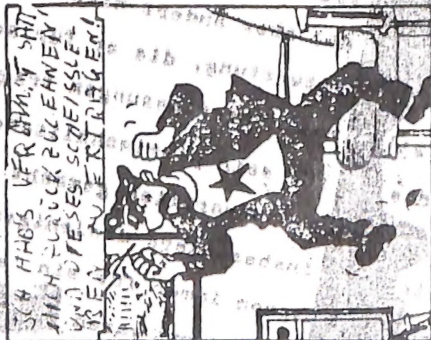 ICH HABS VERDAMMT SATT
MICH ZURÜCK ZU LEHNEN
UND DIESES SCHEISSLE-
BEN ZU ERTRAGEN!